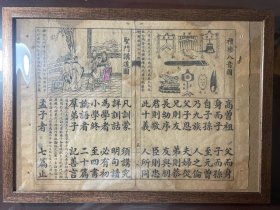 八音圖
高曾祖 父而身
身而子 子而孫
自子孫 至元曾
乃九族 人之倫
父子恩 夫婦從
兄則友 弟則恭
長幼序 友與朋
君則敬 臣則忠
此十義 人所同
聖門 道圖
凡訓蒙 須講究
詳訓詁 明句讀
為學者 必有初
小學終 至四書
論語者 二十篇
羣弟子 記善言
孟子者 七篇止